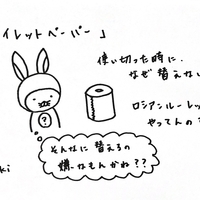 イレットペーパー」
使い切った時に、
なぜ替えない
ロシアンルーレッ
やってんの
?
そんなに替えるの
嫌なもんかね??
ki